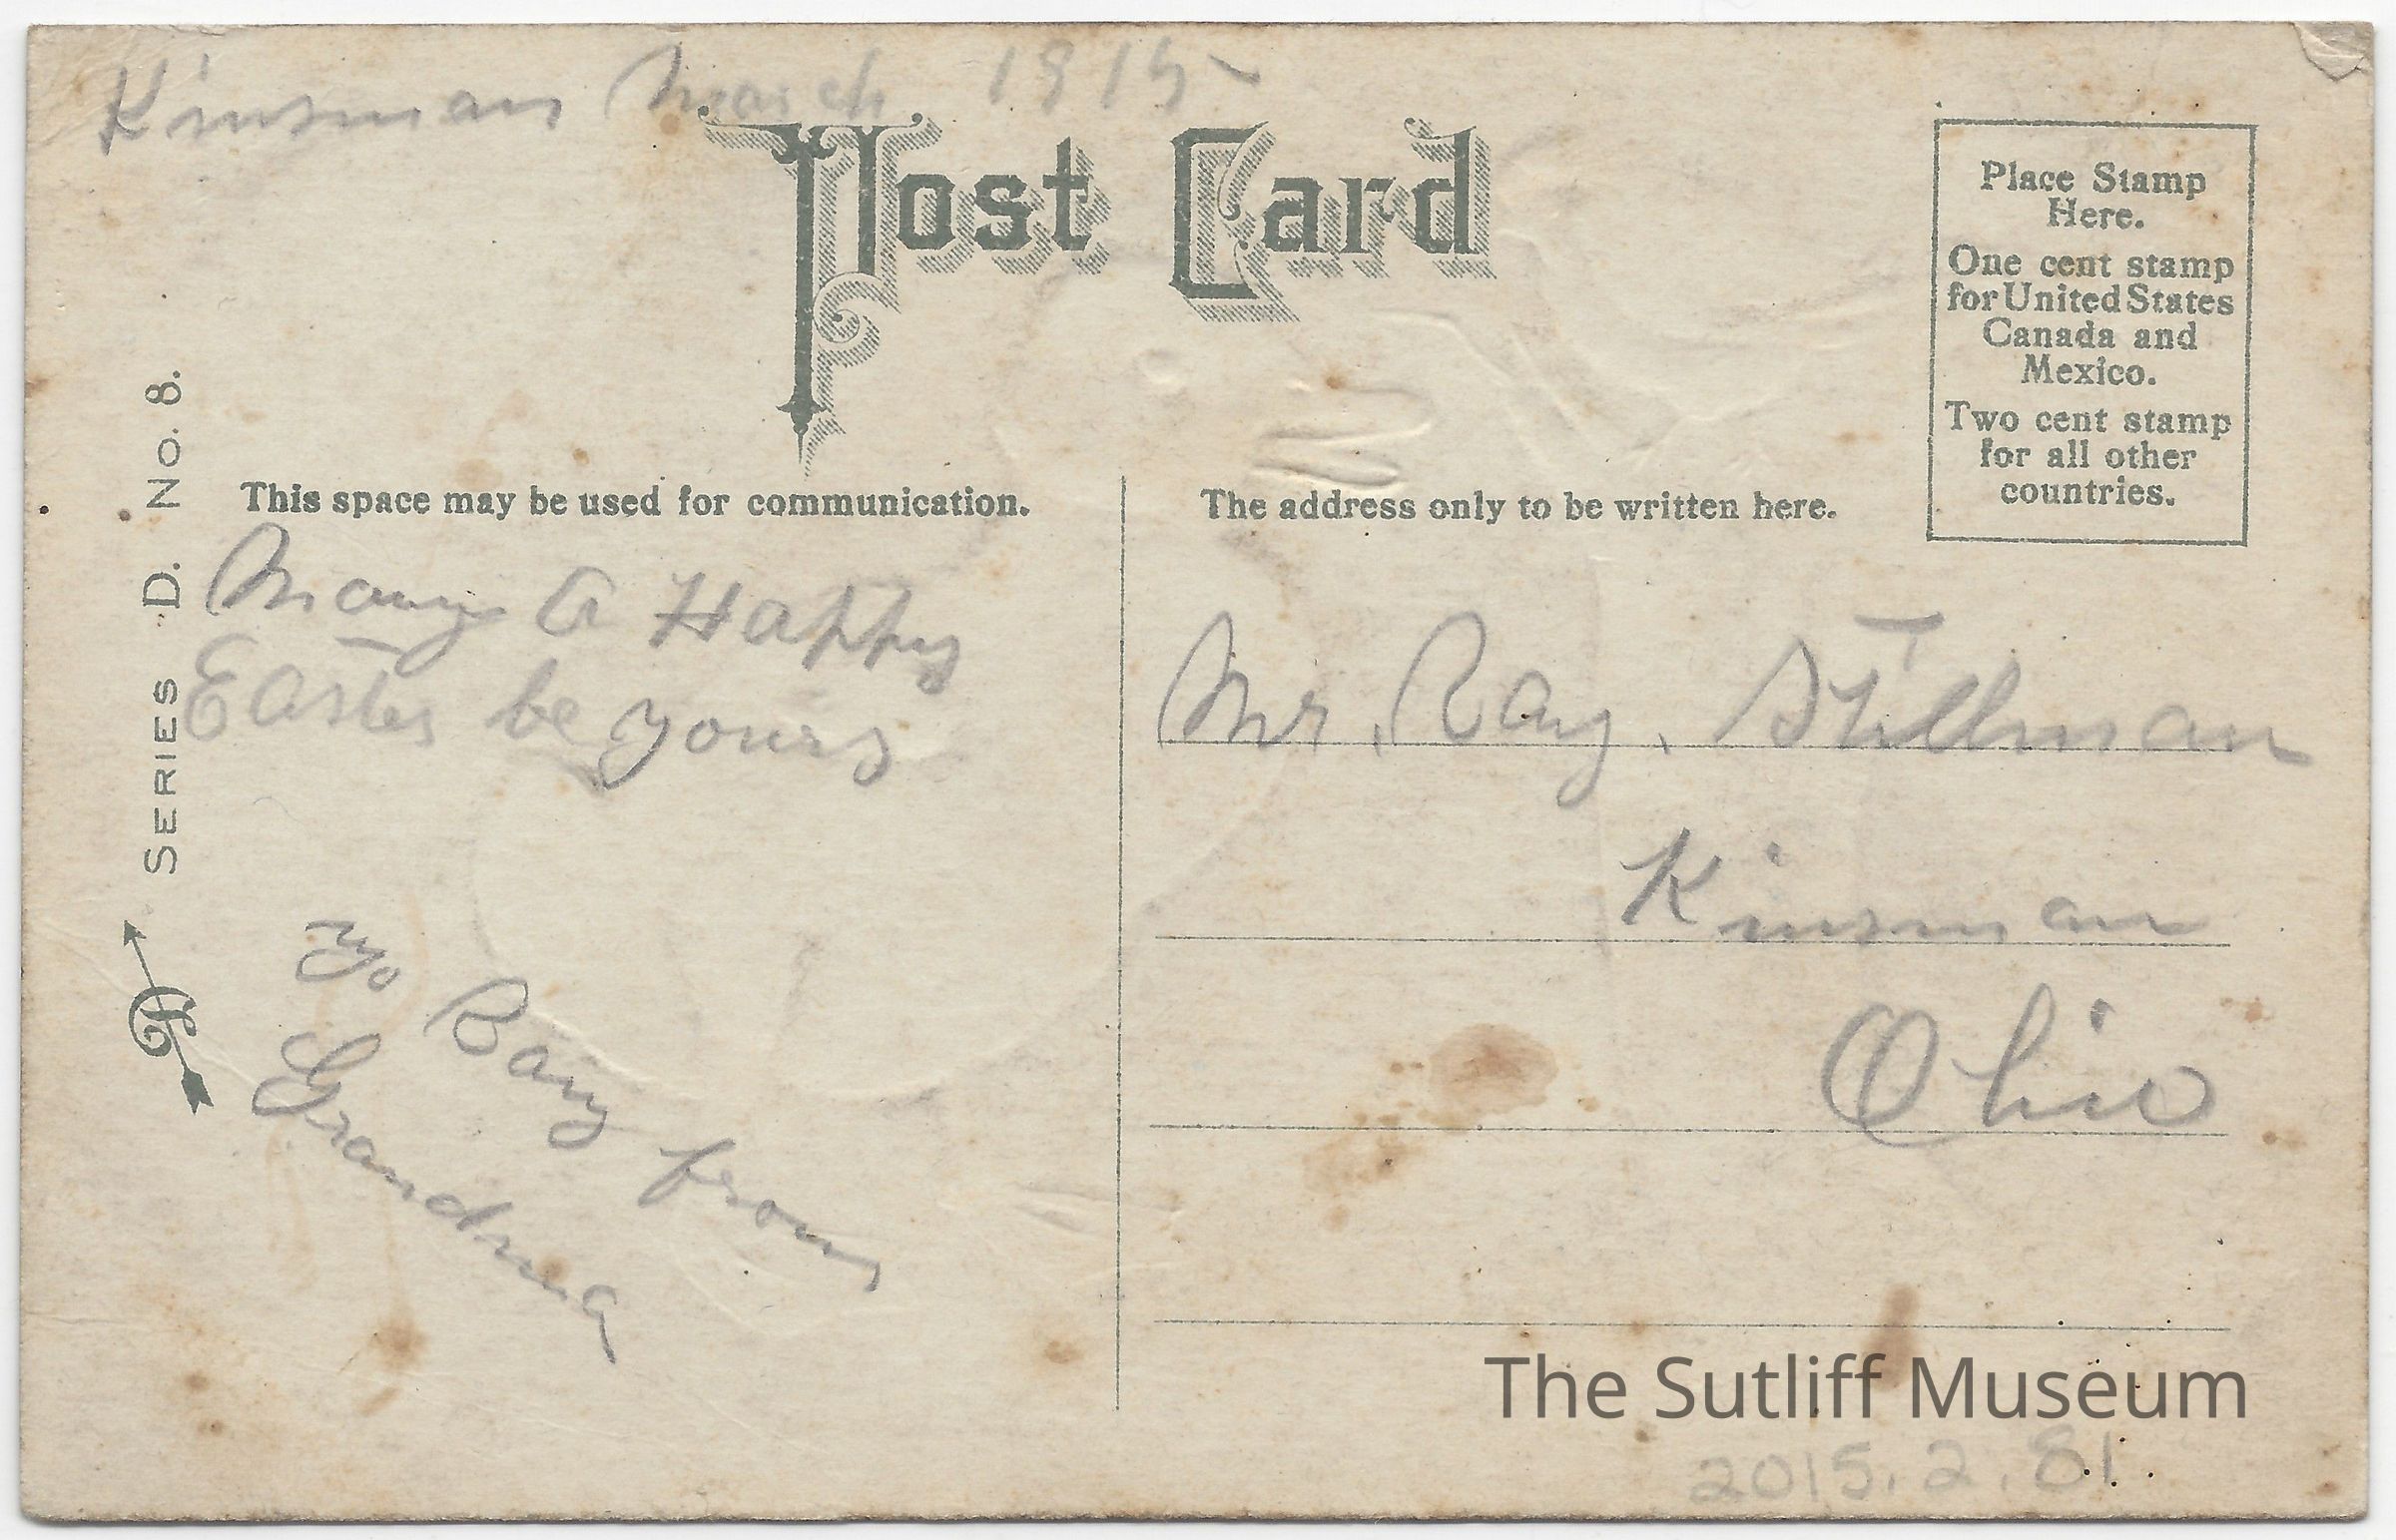 Kinsman March 1915
Post Card
Place Stamp
Here.
One cent stamp
for United States
Canada and
Mexico.
Two cent stamp
for all other
countries.
SERIES D. No. 8.
This space may be used for communication.
May a Happy
Easter be yours
To Ray from
Grandma
The address only to be written here.
Mr. Ray. Stillman
Kinsman
Ohio
The Sutliff Museum
2015.2.81